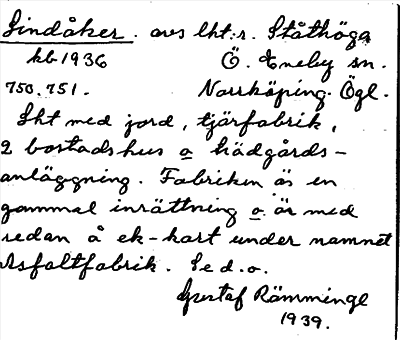 Lindåker. avs lht:r. Ståthöga
kb 1936 Ö. Eneby sn.
750.751. Norrköping. Ögl.
Lht med jord, tjärfabrik,
2 bostadshus o trädgårds-
anläggning. Fabriken är en
gammal inrättning o. är med
redan å ek-kart under namnet
Asfaltfabrik. Se d.o.
Gustaf Rämminge
1939.